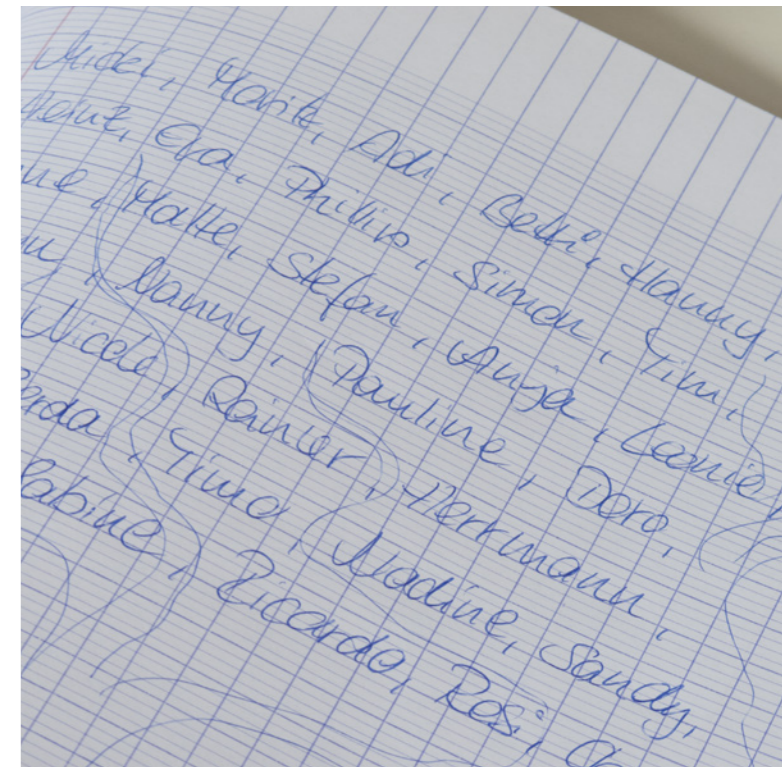 Micki, Marit, Adi, Betti, Hanny,
Eva, Phillip, Simon, Tim,
Malte, Stefan, Anja, Leonie,
Nanny, Pauline, Doro,
Nicole, Rainer, Herrmann,
Timo, Nadine, Sandy,
Sabine, Ricardo, Rosi,